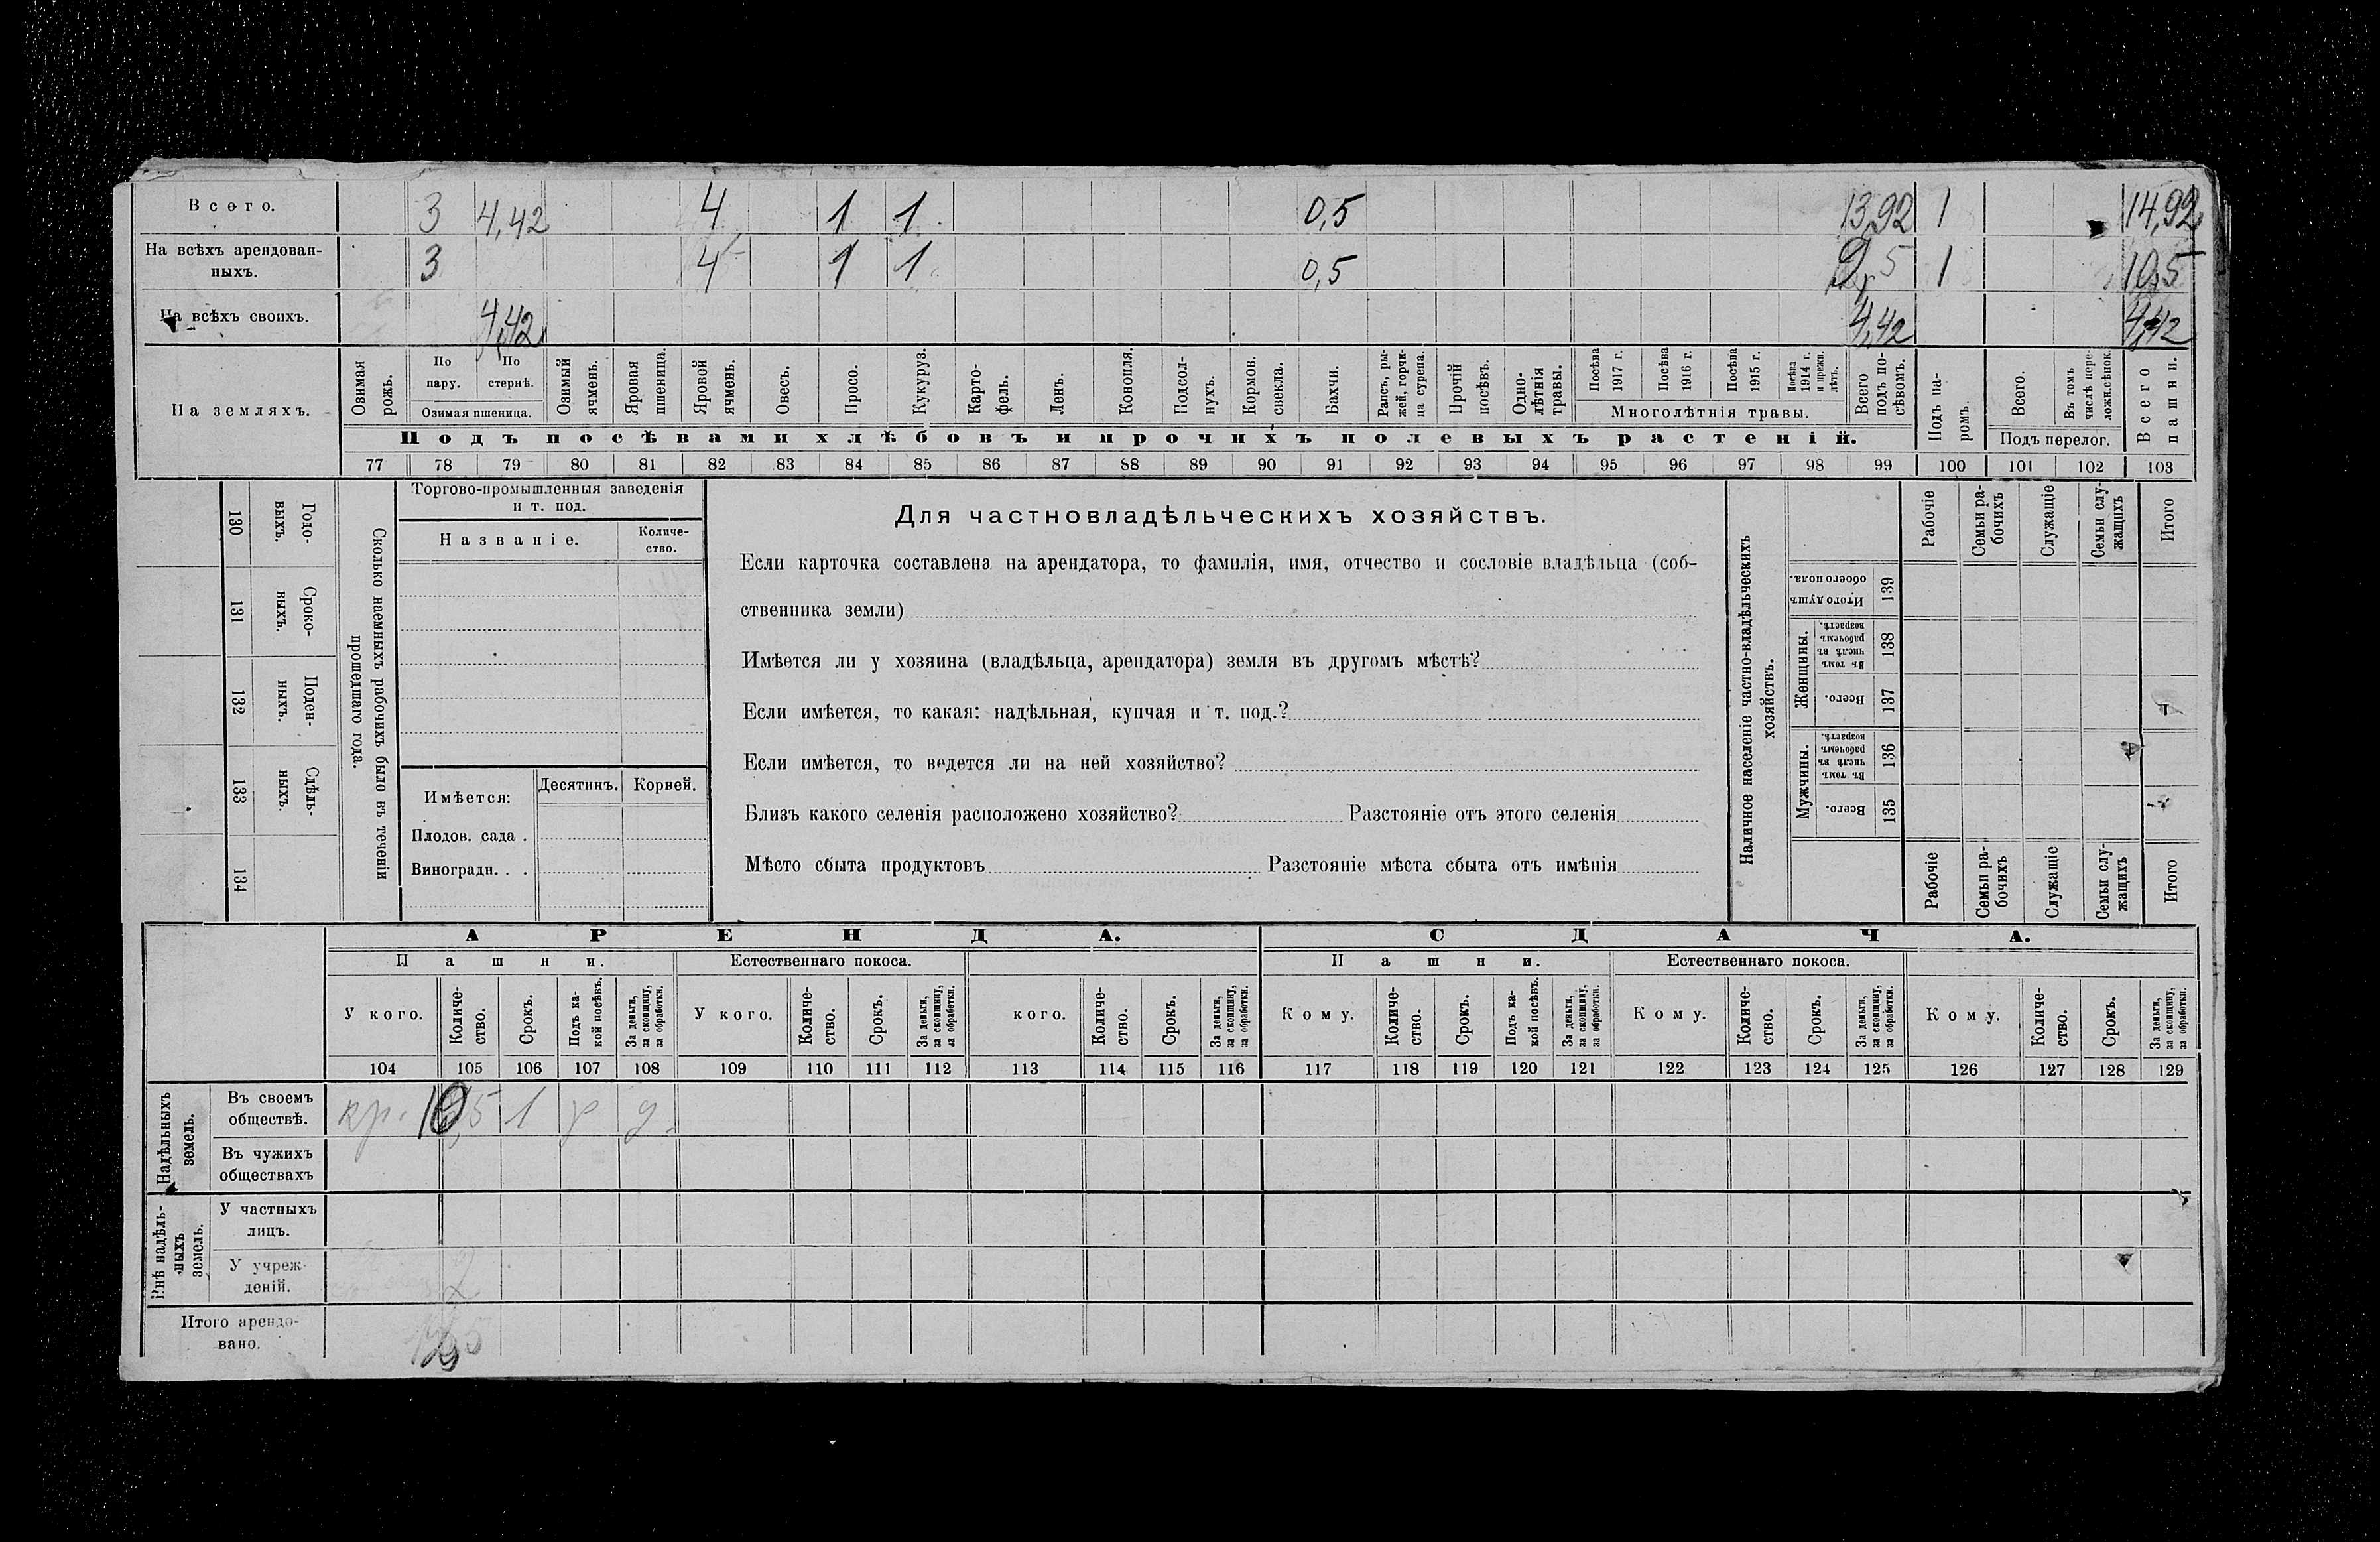 Всого. 3 4,42 4 1 1 0,5 13,92 1 14,92
На всѣхъ арендован-
ныхъ. 3 4 1 1 0,5 9,5 1 10,5
На всѣхъ своихъ. 4,42 4,42 4,42
На земляхъ.
Озимая рожь.
По пару.
По стернѣ.
Озимая пшеница.
Озимый ячмень.
Яровая пшеница.
Яровой ячмень.
Овесъ.
Просо.
Кукуруз.
Карто-
фель.
Ленъ.
Конопля.
Подсол-
нухъ.
Кормов. свекла.
Бахчи.
Рапсъ, ры-
жей, горчи-
ца сурепа.
Прочій посѣвъ.
Одно-
лѣтнія травы.
Посѣва 1917 г.
Посѣва 1916 г.
Посѣва 1915 г.
Посѣва 1914 г. и прежн. лѣтъ.
Многолѣтнія травы.
Всего подъ по-
сѣвомъ.
Подъ па-
ромъ.
Всего.
Въ томъ числѣ пере-
ложн. сѣнок.
Подъ перелог.
Всего пашни.
Подъ посѣвами хлѣбовъ и прочихъ полевыхъ растеній.
77 78 79 80 81 82 83 84 85 86 87 88 89 90 91 92 93 94 95 96 97 98 99 100 101 102 103
130 Годо-
выхъ.
131 Сроко-
ныхъ.
132 Поден-
ныхъ.
133 Сдѣль-
ныхъ.
134
Сколько наемныхъ рабочихъ было въ теченіи
прошедшаго года.
Торгово-промышленныя заведенія
и т. под.
Названіе.
Количе-
ство.
Имѣется:
Десятинъ. Корней.
Плодов. сада .
Виноградн. . .
Для частновладѣльческихъ хозяйствъ.
Если карточка составлена на арендатора, то фамилія, имя, отчество и сословіе владѣльца (соб-
ственника земли)
Имѣется ли у хозяина (владѣльца, арендатора) земля въ другомъ мѣстѣ?
Если имѣется, то какая: надѣльная, купчая и т. под.?
Если имѣется, то ведется ли на ней хозяйство?
Близъ какого селенія расположено хозяйство? Разстояніе отъ этого селенія
Мѣсто сбыта продуктовъ Разстояніе мѣста сбыта отъ имѣнія
Наличное населеніе частно-владѣльческихъ
хозяйствъ.
Рабочіе
Семьи ра-
бочихъ
Служащіе
Семьи слу-
жащихъ
Итого
Итого душъ обоего пола. 139
Женщины.
Въ томъ числѣ въ рабочемъ возрастѣ. 138
Всего. 137
Мужчины.
Въ томъ числѣ въ рабочемъ возрастѣ. 136
Всего. 135
Рабочіе
Семьи ра-
бочихъ
Служащіе
Семьи слу-
жащихъ
Итого
АРЕНДА. СДАЧА.
Пашни. Естественнаго покоса. Пашни. Естественнаго покоса.
У кого.
Количе-
ство.
Срокъ.
Подъ ка-
кой посѣвъ.
За деньги, за скопщину, за обработки.
У кого.
Количе-
ство.
Срокъ.
За деньги, за скопщину, за обработки.
кого.
Количе-
ство.
Срокъ.
За деньги, за скопщину, за обработки.
Кому.
Количе-
ство.
Срокъ.
Подъ ка-
кой посѣвъ.
За деньги, за скопщину, за обработки.
Кому.
Количе-
ство.
Срокъ.
За деньги, за скопщину, за обработки.
Кому.
Количе-
ство.
Срокъ.
За деньги, за скопщину, за обработки.
104 105 106 107 108 109 110 111 112 113 114 115 116 117 118 119 120 121 122 123 124 125 126 127 128 129
Надѣльныхъ
земель.
Въ своемъ
обществѣ. кр. 10,5 1
Въ чужихъ
обществахъ
Внѣ надѣль-
ныхъ
земель.
У частныхъ
лицъ.
У учреж-
деній.
Итого арендо-
вано.